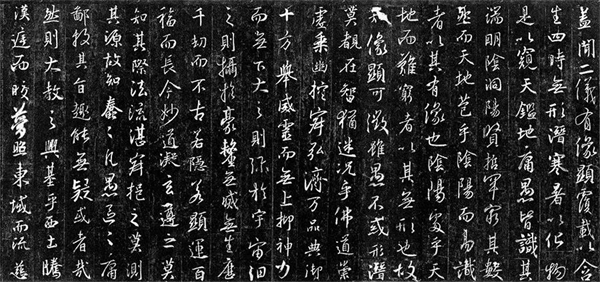 蓋聞二儀有像顯覆載以含
生四時無形潛寒暑以化物
是以窺天鑑地庸愚皆識其
端明陰洞陽賢哲罕窮其數
然而天地苞乎陰陽而易識
者以其有像也陰陽處乎天
地而難窮者以其無形也故
知像顯可徵雖愚不惑形潛
莫覩在智猶迷況乎佛道崇
虛乘幽控寂弘濟萬品典御
十方舉威靈而無上抑神力
而無下大之則彌於宇宙細
之則攝於豪釐無滅無生歷
千劫而不古若隱若顯運百
福而長今妙道凝玄遵之莫
知其際法流湛寂挹之莫測
其源故知蠢蠢凡愚區區庸
鄙投其旨趣能無疑或者哉
然則大教之興基乎西土騰
漢庭而皎夢照東域而流慈